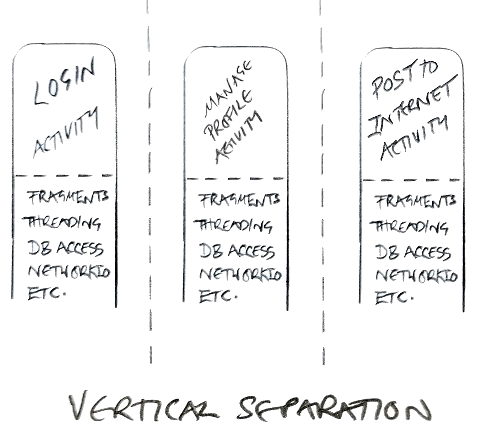 LOGIN
ACTIVITY
FRAGMENTS
THREADING
DB ACCESS
NETWORK IO
ETC.
MANAGE
PROFILE
ACTIVITY
FRAGMENTS
THREADING
DB ACCESS
NETWORK IO
ETC.
POST TO
INTERNET
ACTIVITY
FRAGMENTS
THREADING
DB ACCESS
NETWORK IO
ETC.
VERTICAL SEPARATION